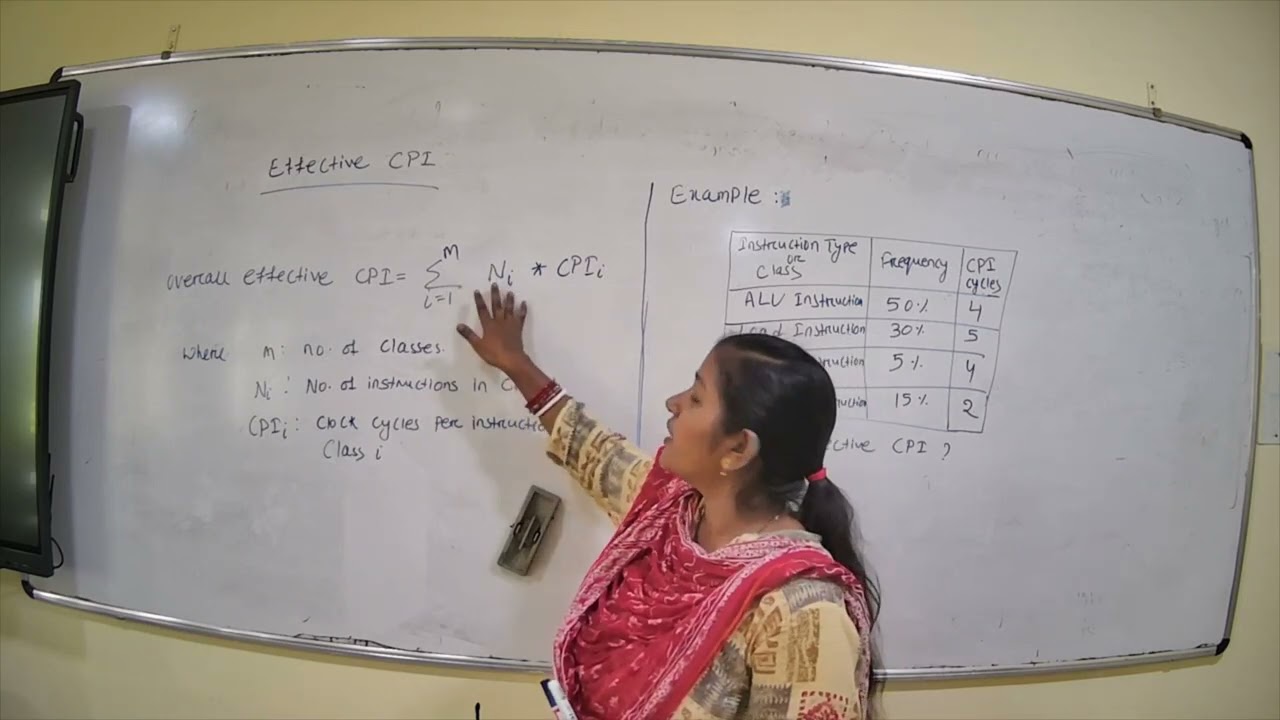 Effective CPI
overall effective CPI = Σ i=1 m Ni * CPIi
where m: no. of Classes.
Ni : No. of instructions in
CPIi : Clock cycles per
Class i
Example :
Instruction Type or Class Frequency CPI cycles
ALU Instruction 50% 4
Instruction 30% 5
5% 4
15% 2
CPI ?